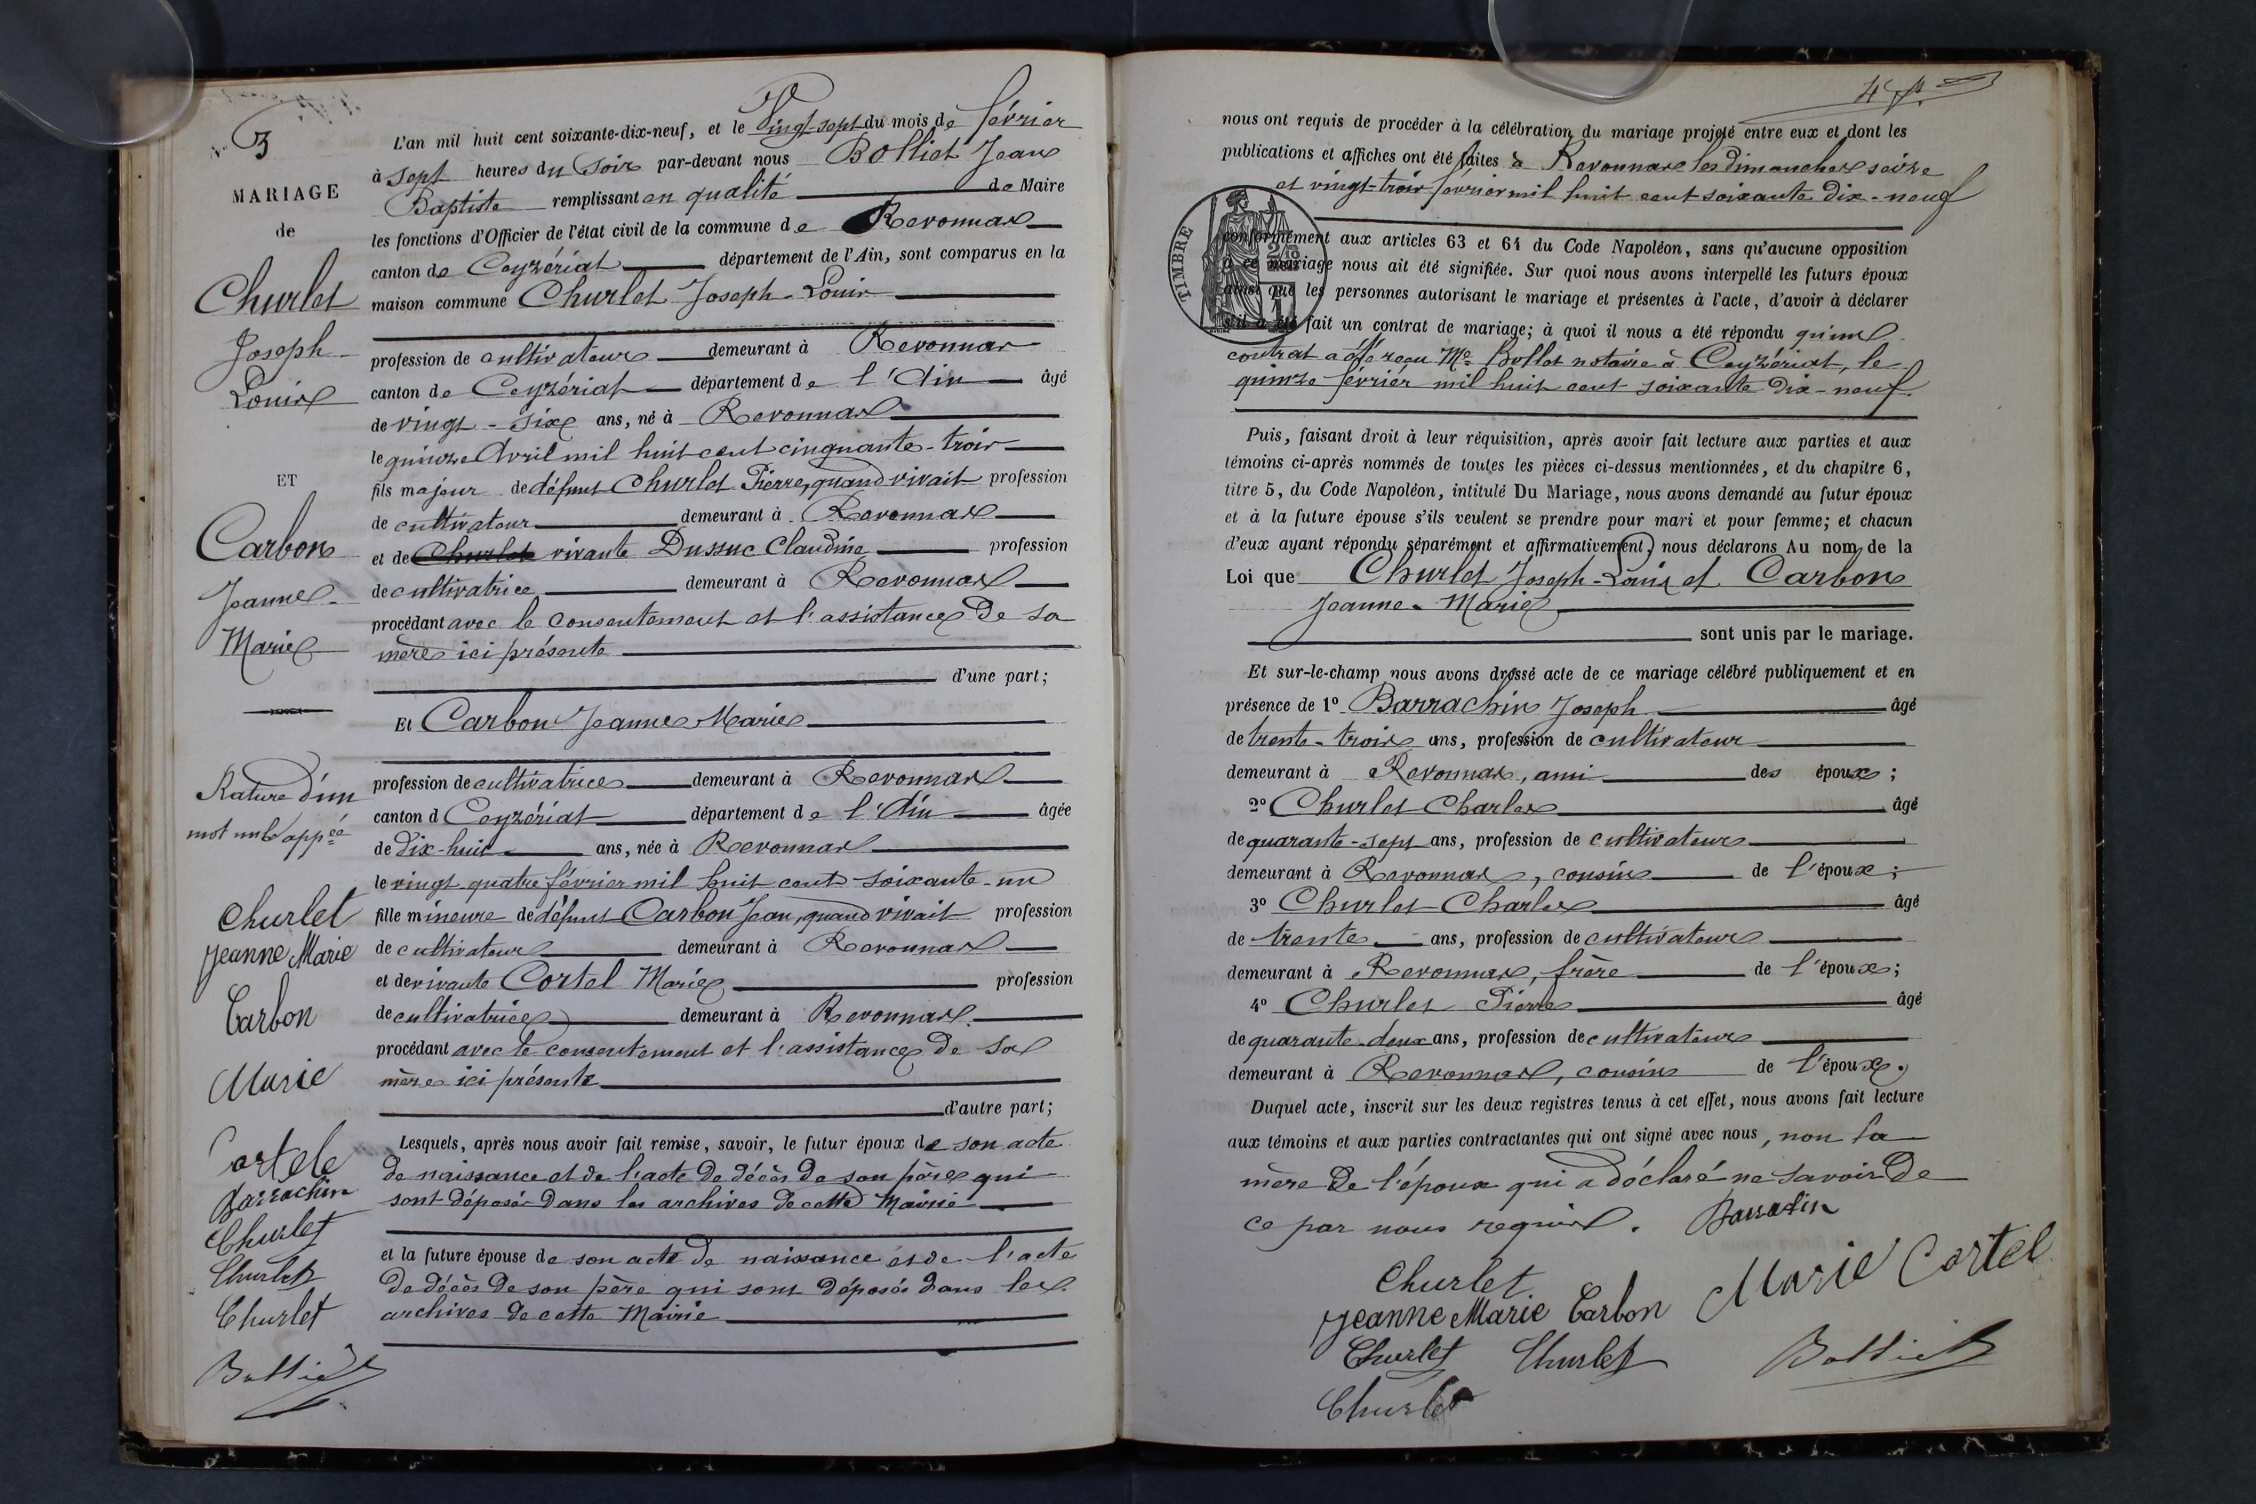 N° 3
MARIAGE
de
Churlet
Joseph
Louis
ET
Carbon
Jeanne
Marie
Rature d'un
mot nul appée
Churlet
Jeanne Marie
Carbon
Marie
Cortele
Barrachin
Churlet
Churlet
Churlet
Bolliet
L'an mil huit cent soixante-dix-neuf, et le Vingt-sept du mois de février
à sept heures du soir par-devant nous Bolliet Jean
Baptiste remplissant en qualité de Maire
les fonctions d'Officier de l'état civil de la commune de Revonnas
canton de Ceyzériat département de l'Ain, sont comparus en la
maison commune Churlet Joseph-Louis
profession de cultivateur demeurant à Revonnas
canton de Ceyzériat département de l'Ain âgé
de vingt-six ans, né à Revonnas
le quinze Avril mil huit cent cinquante-trois
fils majeur de défunt Churlet Pierre, quand vivait profession
de cultivateur demeurant à Revonnas
et de Churlet vivante Dussuc Claudine profession
de cultivatrice demeurant à Revonnas
procédant avec le consentement et l'assistance de sa
mère ici présente
d'une part;
Et Carbon Jeanne Marie
profession de cultivatrice demeurant à Revonnas
canton d Ceyzériat département de l'Ain âgée
de dix-huit ans, née à Revonnas
le vingt quatre février mil huit cent soixante-un
fille mineure de défunt Carbon Jean, quand vivait profession
de cultivateur demeurant à Revonnas
et de vivante Cortel Marie profession
de cultivatrice demeurant à Revonnas
procédant avec le consentement et l'assistance de sa
mère ici présente
d'autre part;
Lesquels, après nous avoir fait remise, savoir, le futur époux de son acte
de naissance et de l'acte de décès de son père qui
sont déposés dans les archives de cette Mairie
et la future épouse de son acte de naissance et de l'acte
de décès de son père qui sont déposés dans les
archives de cette Mairie
nous ont requis de procéder à la célébration du mariage projeté entre eux et dont les
publications et affiches ont été faites à Revonnas les dimanches seize
et vingt-trois février mil huit cent soixante dix-neuf
TIMBRE
conformément aux articles 63 et 64 du Code Napoléon, sans qu'aucune opposition
à ce mariage nous ait été signifiée. Sur quoi nous avons interpellé les futurs époux
ainsi que les personnes autorisant le mariage et présentes à l'acte, d'avoir à déclarer
s'il a été fait un contrat de mariage; à quoi il nous a été répondu qu'un
contrat a été reçu Me Bollet notaire à Ceyzériat, le
quinze février mil huit cent soixante dix-neuf.
Puis, faisant droit à leur réquisition, après avoir fait lecture aux parties et aux
témoins ci-après nommés de toutes les pièces ci-dessus mentionnées, et du chapitre 6,
titre 5, du Code Napoléon, intitulé Du Mariage, nous avons demandé au futur époux
et à la future épouse s'ils veulent se prendre pour mari et pour femme; et chacun
d'eux ayant répondu séparément et affirmativement, nous déclarons Au nom de la
Loi que Churlet Joseph-Louis et Carbon
Jeanne-Marie
sont unis par le mariage.
Et sur-le-champ nous avons dressé acte de ce mariage célébré publiquement et en
présence de 1° Barrachin Joseph âgé
de trente-trois ans, profession de cultivateur
demeurant à Revonnas, ami des époux;
2° Churlet Charles âgé
de quarante-sept ans, profession de cultivateur
demeurant à Revonnas, cousin de l'époux;
3° Churlet Charles âgé
de trente ans, profession de cultivateur
demeurant à Revonnas, frère de l'époux;
4° Churlet Pierre âgé
de quarante-deux ans, profession de cultivateur
demeurant à Revonnas, cousin de l'époux,
Duquel acte, inscrit sur les deux registres tenus à cet effet, nous avons fait lecture
aux témoins et aux parties contractantes qui ont signé avec nous, non la
mère de l'époux qui a déclaré ne savoir de
ce par nous requise. Barrachin
Churlet Marie Cortel
Jeanne Marie Carbon
Churlet Churlet Bolliet
Churlet